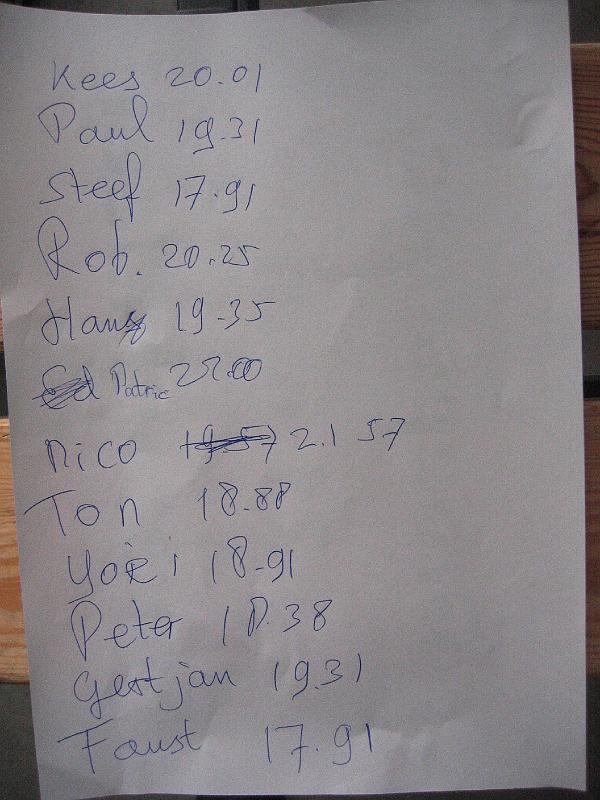 Kees 20.01
Paul 19.31
Steef 17.91
Rob. 20.25
Hans 19-35
Patric
Nico 2.1 57
Ton 18.88
Yoëi 18-91
Peter 18.38
Gertjan 19.31
Faust 17.91